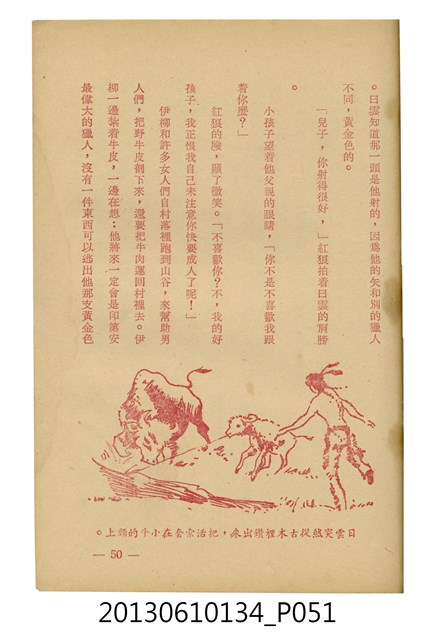 。日雲知道那一頭是他射的，因為他的矢和別的獵人
不同，黃金色的。
「兒子，你射得很好，」紅狼拍着日雲的肩膀
。
小孩子望着他父親的眼睛，「你不是不喜歡我跟
着你麽？」
紅狼的臉，顯了微笑。「不喜歡你？不，我的好
孩子，我正恨我自己未注意你快要成人了呢！」
伊柳和許多女人們自村落裡跑到山谷，來幫助男
人們，把野牛皮剝下來，還要把牛肉運回村裡去。伊
柳一邊紮着牛皮，一邊在想：他將來一定會是印第安
最偉大的獵人，沒有一件東西可以逃出他那支黃金色
日雲突然從古木裡鑽出來，把活索套在小牛的頸上。
— 50 —
20130610134_P051